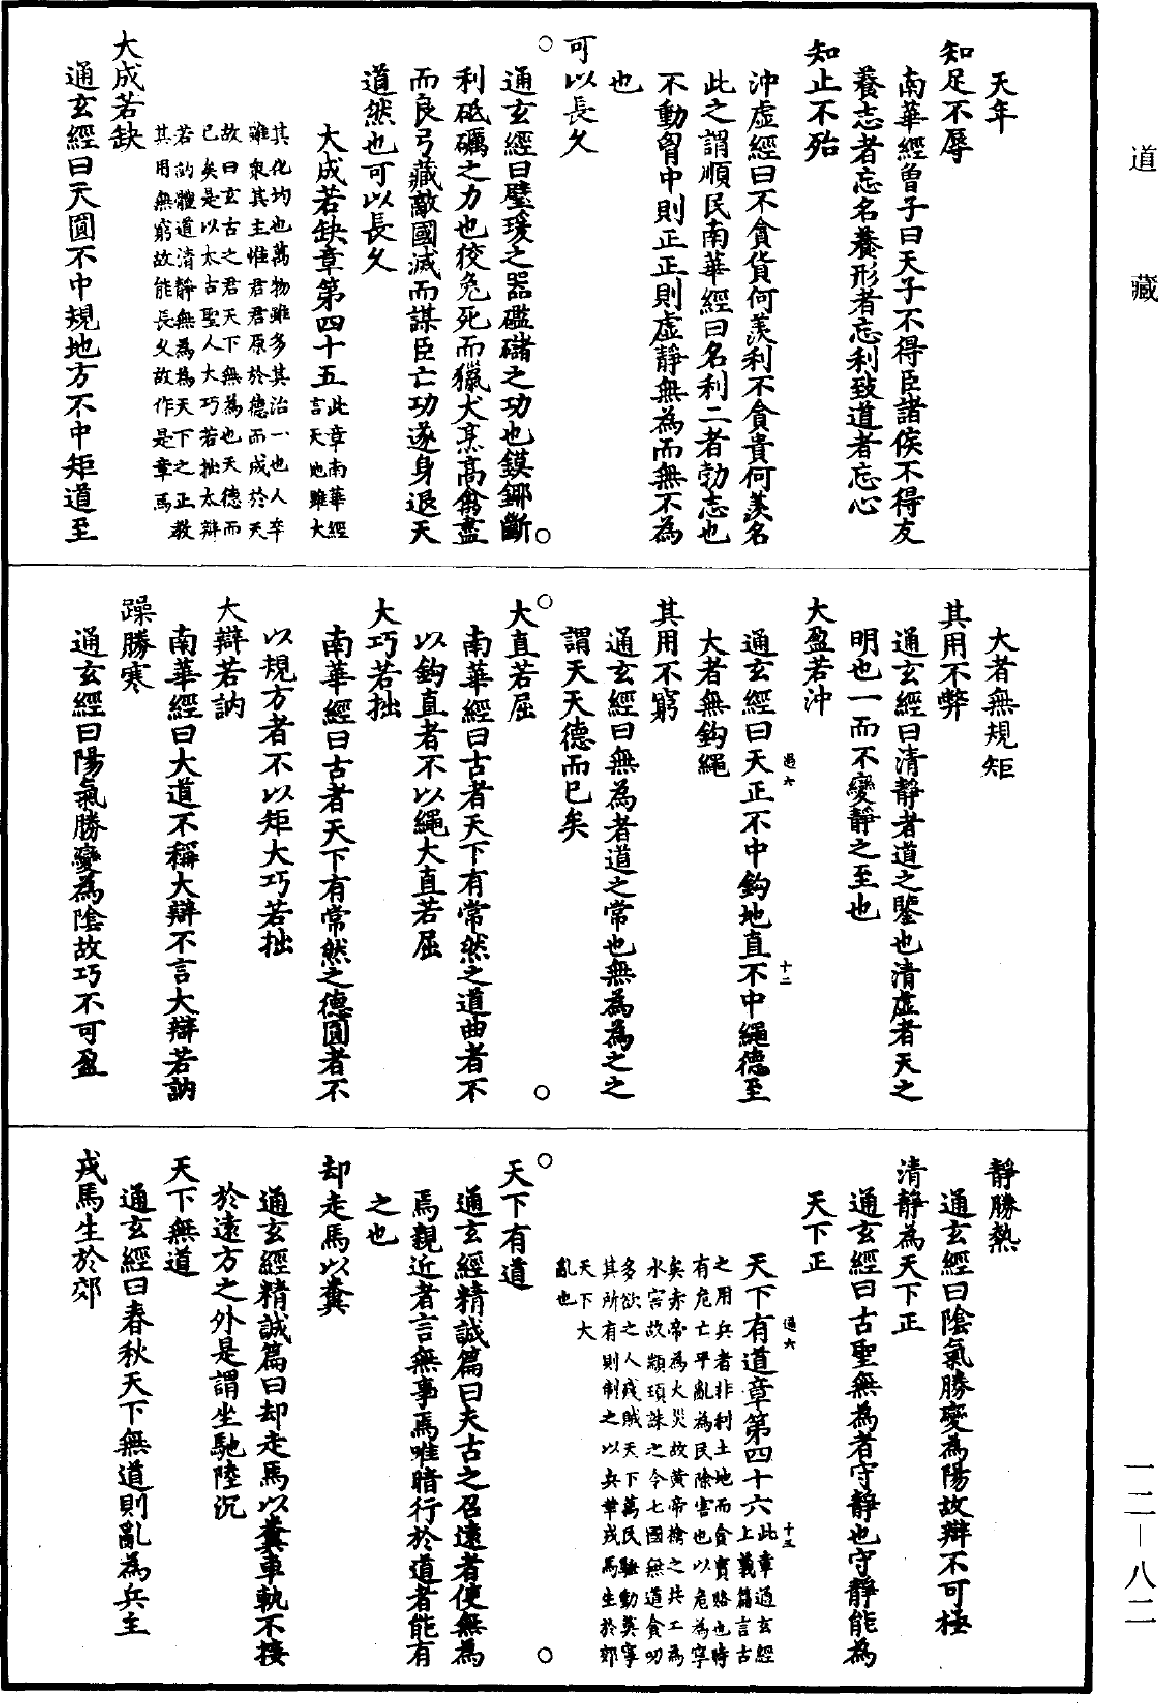 道 藏
天年
知足不辱
南華經曾子曰天子不得臣諸侯不得友
養志者忘名養形者忘利致道者忘心
知止不殆
沖虛經曰不貪貨何羡利不貪貴何羡名
此之謂順民南華經曰名利二者勃志也
不動胷中則正正則虛靜無為而無不為
也
可以長久
通玄經曰璧瑗之器礛䃴之功也鏌鋣斷
利砥礪之力也狡兔死而獵犬烹高鳥盡
而良弓藏敵國滅而謀臣亡功遂身退天
道然也可以長久
大成若缺章第四十五此章南華經
言天地雖大
其化均也萬物雖多其治一也人卒
雖衆其主惟君君原於德而成於天
故曰玄古之君天下無為也天德而
已矣是以太古聖人大巧若拙大辯
若訥體道清靜無為為天下之正教
其用無窮故能長久故作是章焉
大成若缺
通玄經曰天圓不中規地方不中矩道至
大者無規矩
其用不弊
通玄經曰清靜者道之鑒也清虛者天之
明也一而不變靜之至也
大盈若沖
通玄經曰天正不中鈎地直不中繩德至
過六
十二
大者無鈎繩
其用不窮
通玄經曰無為者道之常也無為為之之
謂天天德而已矣
大直若屈
南華經曰古者天下有常然之道曲者不
以鈎直者不以繩大直若屈
大巧若拙
南華經曰古者天下有常然之德圓者不
以規方者不以矩大巧若拙
大辯若訥
南華經曰大道不稱大辯不言大辯若訥
躁勝寒
通玄經曰陽氣勝變為陰故巧不可盈
靜勝熱
通玄經曰陰氣勝變為陽故辯不可極
清靜為天下正
通玄經曰古聖無為者守靜也守靜能為
天下正
過六
十三
天下有道章第四十六此章通玄經
上義篇言古
之用兵者非利土地而貪寳賂也時
有危亡平亂為民除害也以危為寧
矣赤帝為火災故黃帝擒之共工為
水害故顓頊誅之今七國無道貪叨
多欲之人殘賊天下萬民騷動莫寧
其所有則制之以兵革戎馬生於郊
天下大
亂也
天下有道
通玄經精誠篇曰夫古之召遠者使無為
焉親近者言無事焉唯暗行於道者能有
之也
却走馬以糞
通玄經精誠篇曰却走馬以糞車軌不接
於遠方之外是謂坐馳陸沉
天下無道
通玄經曰春秋天下無道則亂為兵主
戎馬生於郊
一二－八二